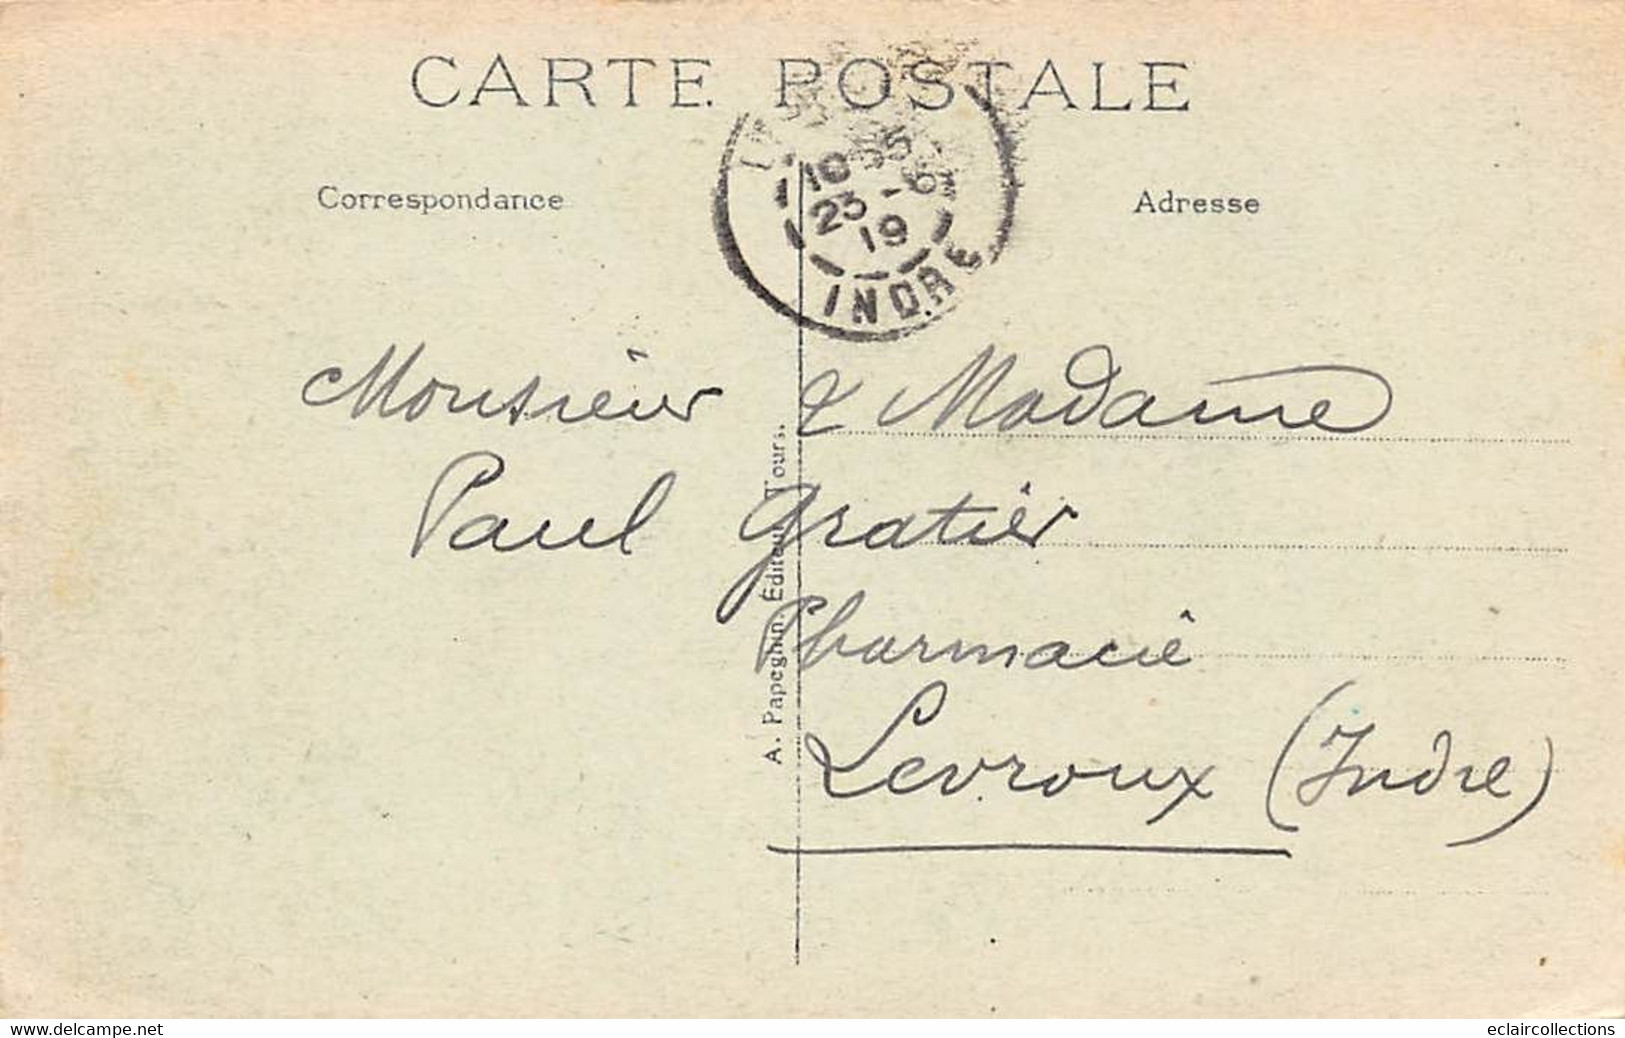 CARTE POSTALE
Correspondance
Adresse
10 55
23 -6
19
INDRE
Monsieur & Madame
Paul Gratier
Pharmacie
Levroux (Indre)
A. Papeghin, Éditeur, Tours.
www.delcampe.net
eclaircollections